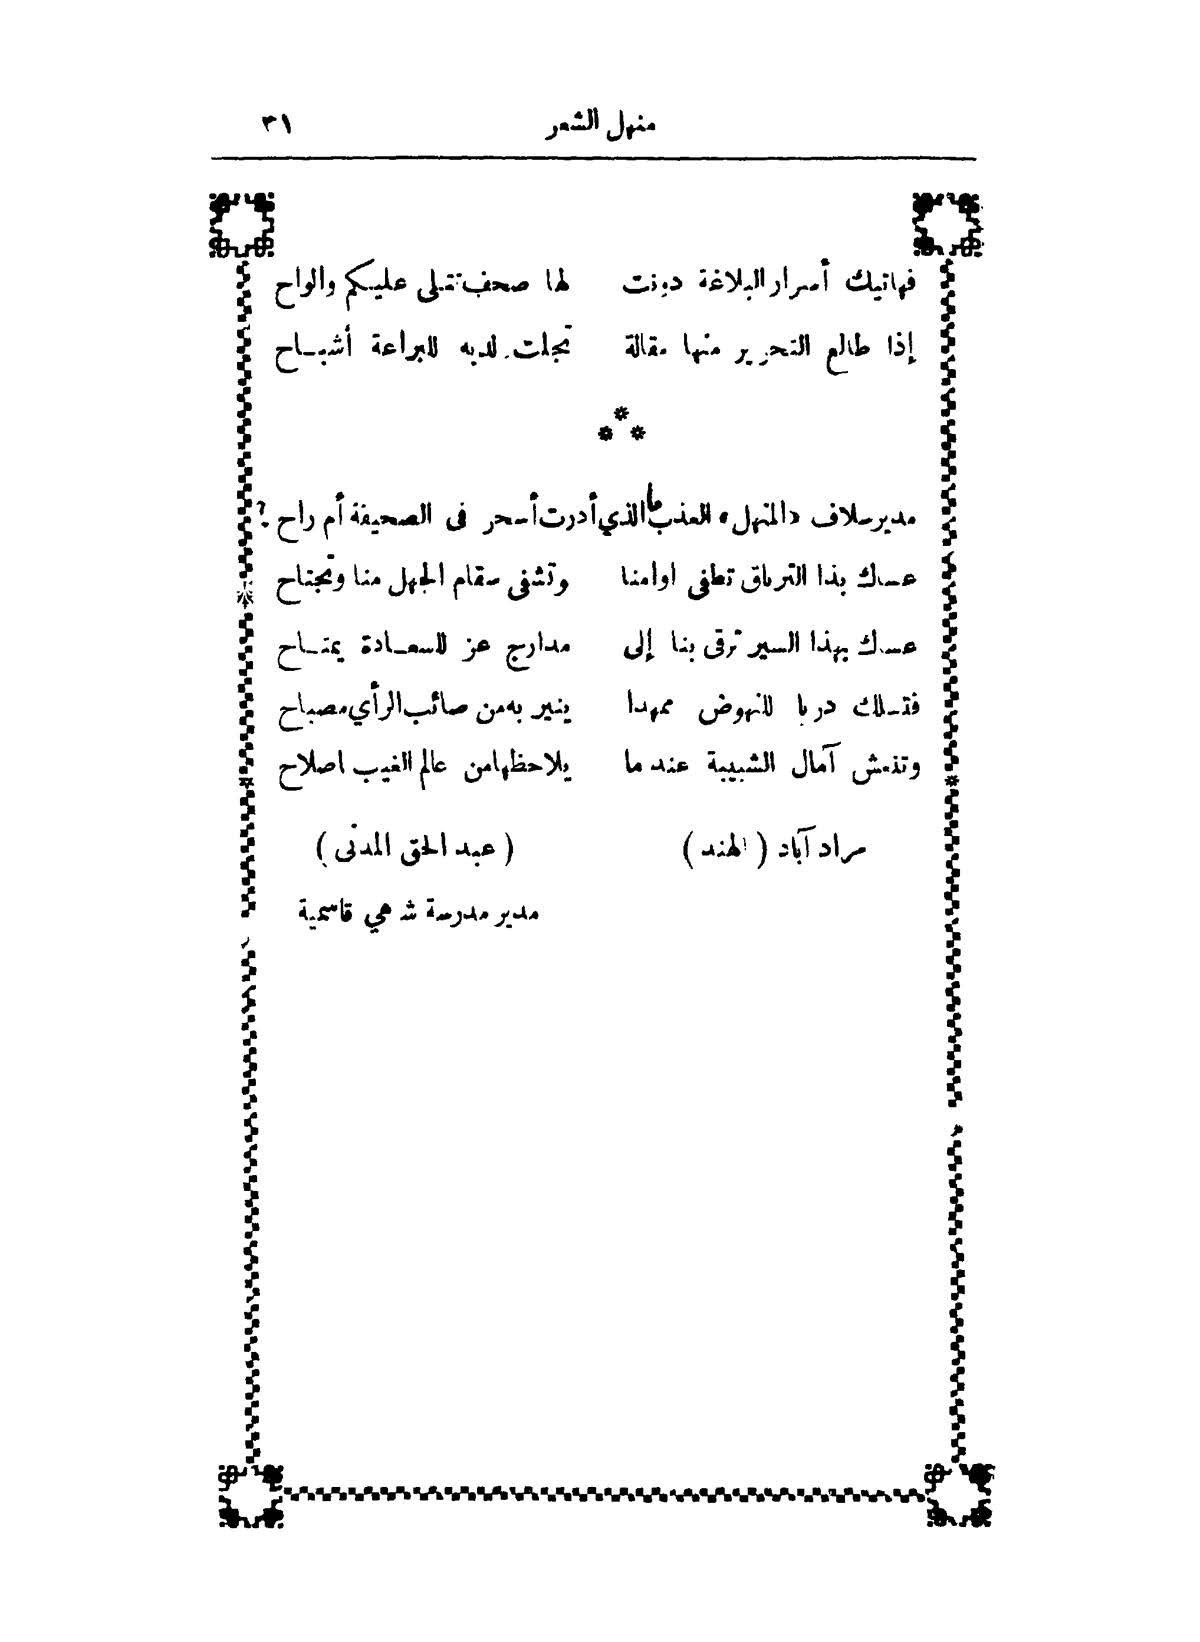 منهل الشعر ٣١
فهاتيك أسرار البلاغة دونت لها صحف تتلى عليكم والواح
إذا طالع التحرير منها مقالة تجلت لديه للبراعة أشباح
مدير سلاف «المنهل» العذب ما الذي أدرت أسحر فى الصحيفة أم راح ؟
عساك بذا الترياق تطفى اوامنا وتشفى سقام الجهل منا وتجتاح
عساك بهذا السير ترقى بنا إلى مدارج عز للسعادة يمتاح
فتسلك دربا للنهوض ممهدا ينير به من صائب الرأي مصباح
وتنعش آمال الشبيبة عند ما يلاحظها من عالم الغيب اصلاح
مراد آباد ( الهند ) ( عبد الحق المدنى )
مدير مدرسة شاهي قاسمية